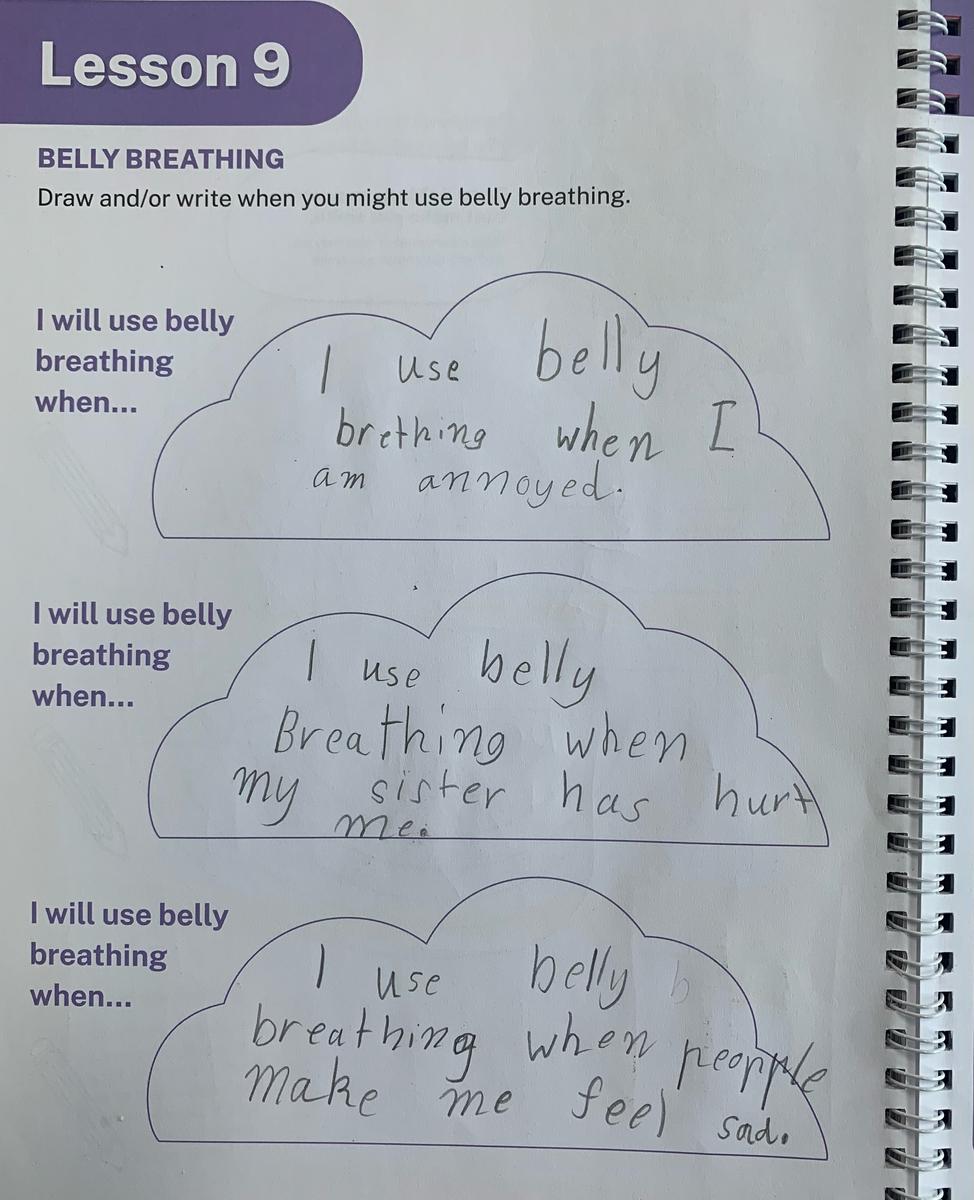 Lesson 9
BELLY BREATHING
Draw and/or write when you might use belly breathing.
I will use belly
breathing
when...
I use belly
brething when I
am annoyed.
I will use belly
breathing
when...
I use belly
Breathing when
my sister has hurt
me.
I will use belly
breathing
when...
I use belly b
breathing when peopple
make me feel sad.